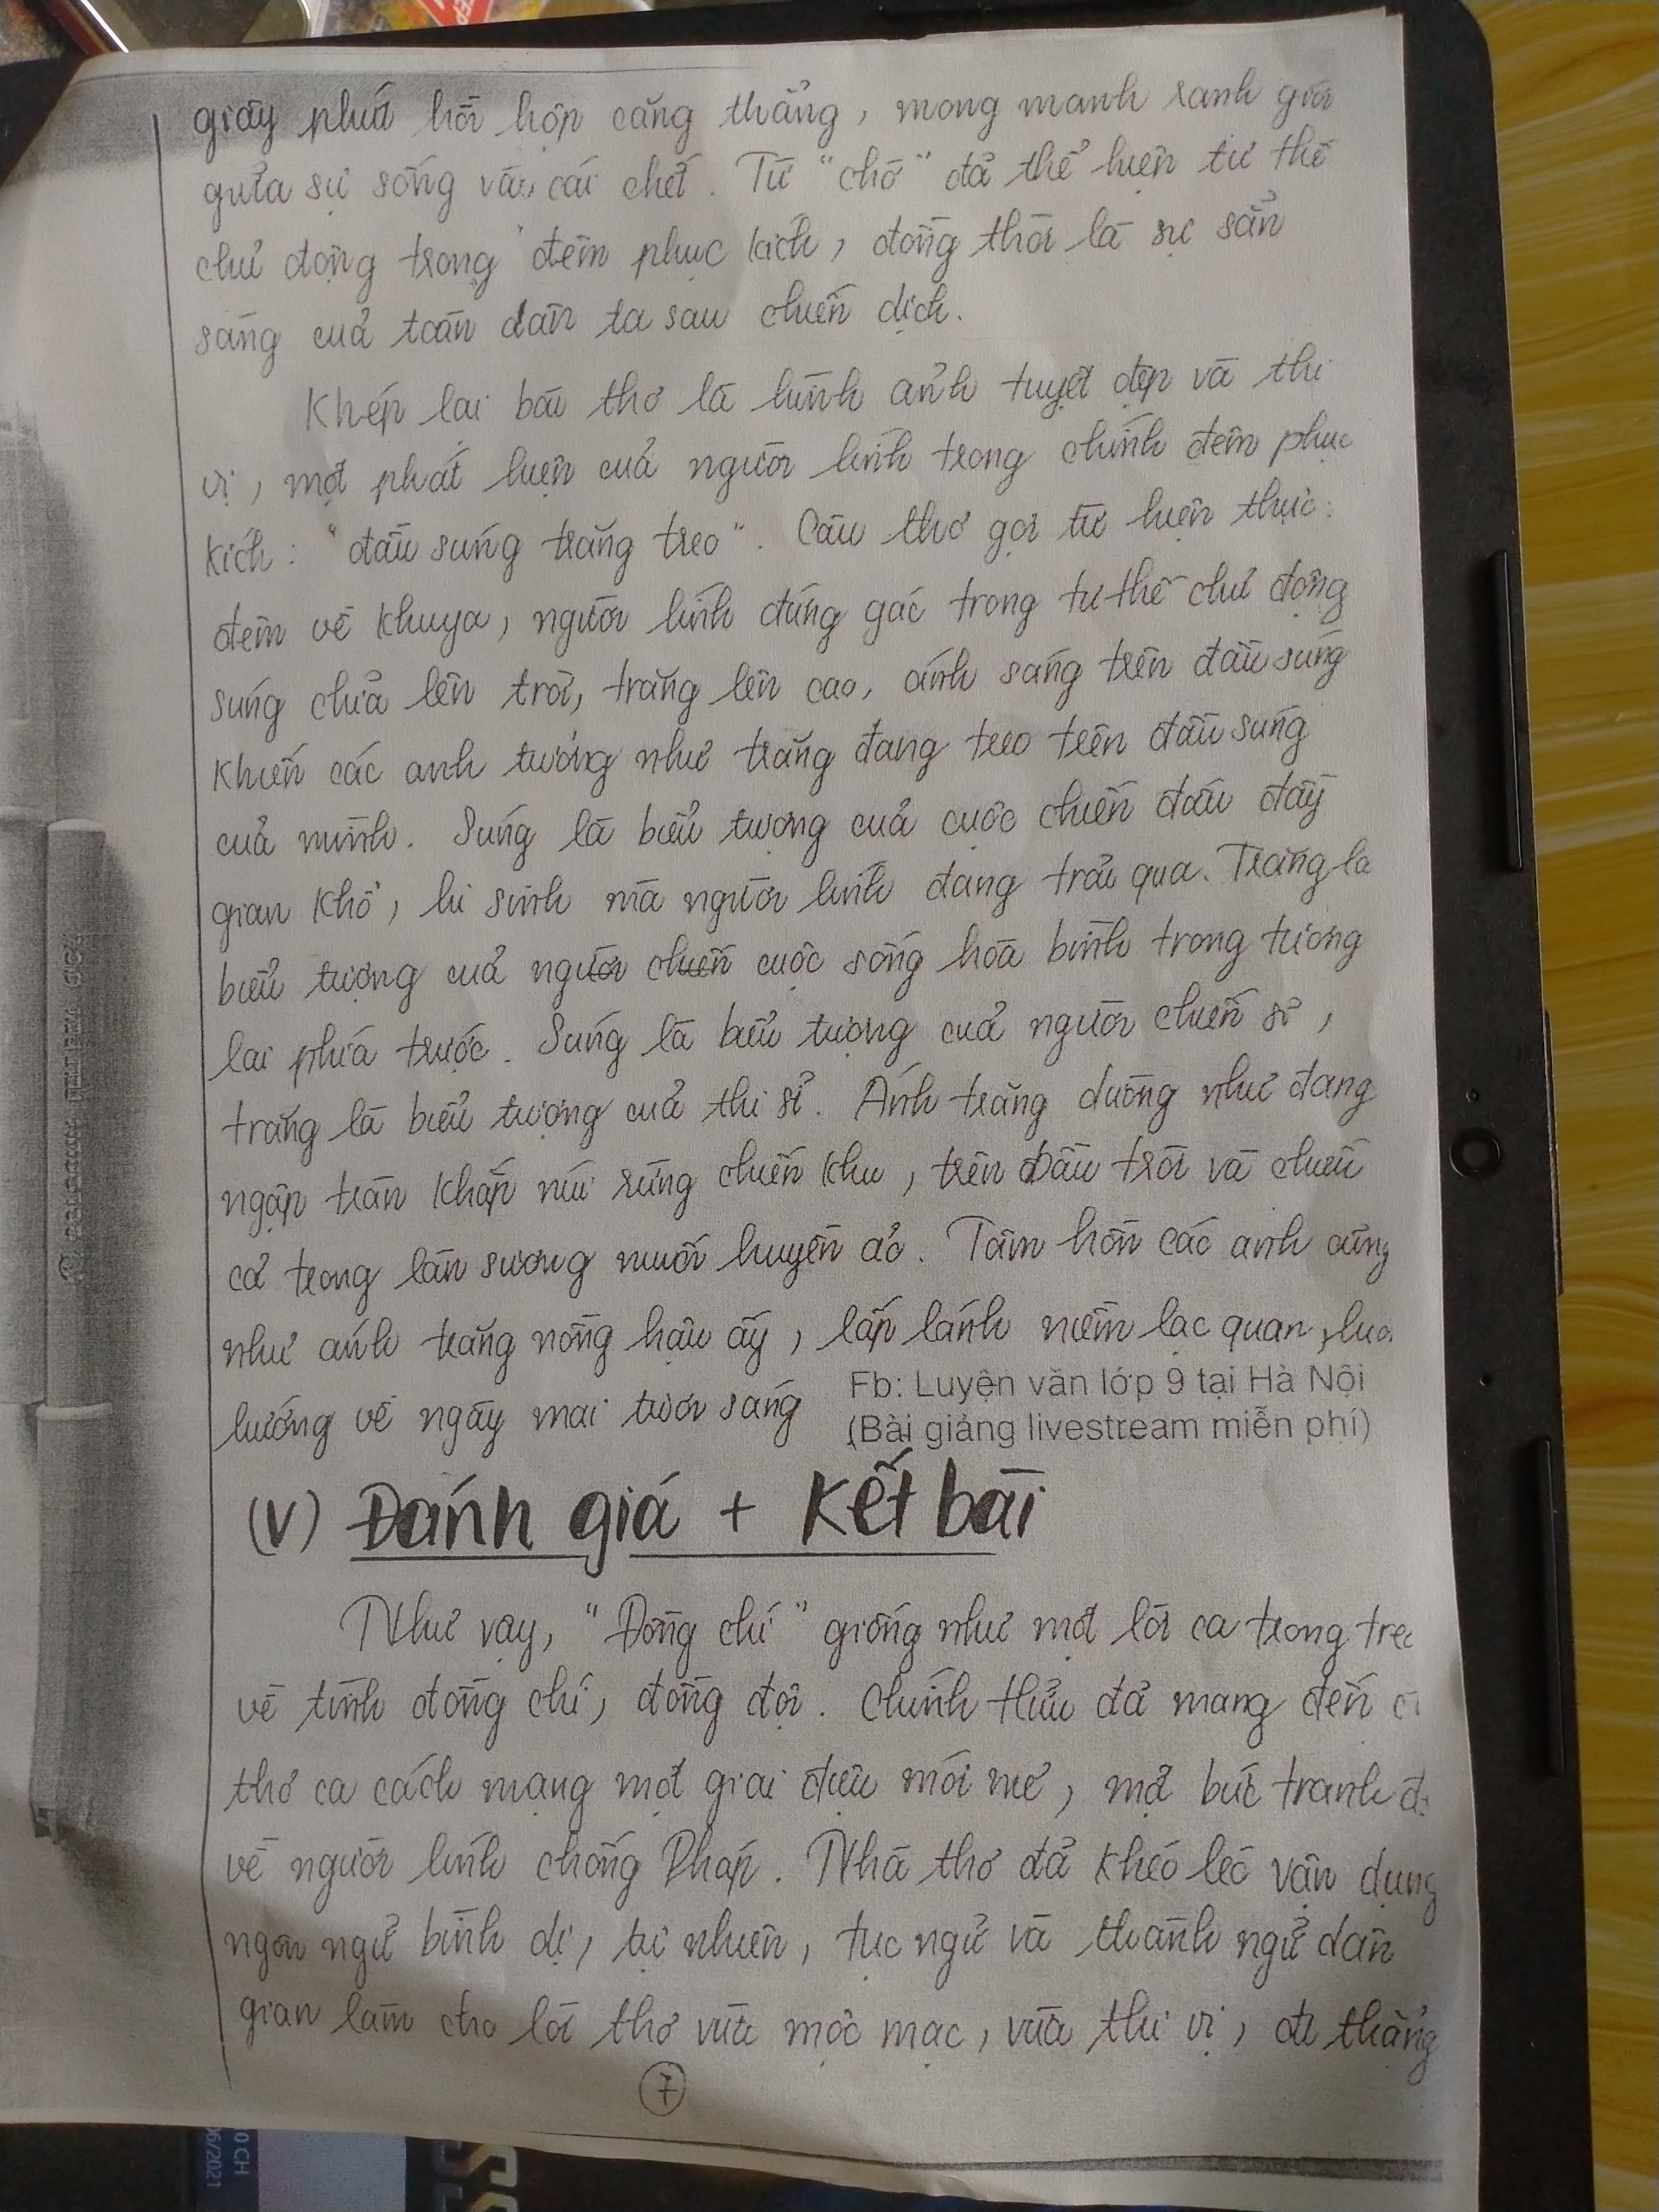 giây phút hồi hộp căng thẳng, mong manh ranh giới
giữa sự sống và cái chết. Từ "chờ" đã thể hiện tư thế
chủ động trong đêm phục kích, đồng thời là sự sẵn
sàng của toàn dân ta sau chiến dịch.
Khép lại bài thơ là hình ảnh tuyệt đẹp và thi
vị, một phát hiện của người lính trong chính đêm phục
kích: "đầu súng trăng treo". Câu thơ gợi từ hiện thực:
đêm về khuya, người lính đứng gác trong tư thế chủ động
súng chĩa lên trời, trăng lên cao, ánh sáng trên đầu súng
khiến các anh tưởng như trăng đang treo trên đầu súng
của mình. Súng là biểu tượng của cuộc chiến đấu đầy
gian khổ, hi sinh mà người lính đang trải qua. Trăng là
biểu tượng của người chiến cuộc sống hòa bình trong tương
lai phía trước. Súng là biểu tượng của người chiến sĩ,
trăng là biểu tượng của thi sĩ. Ánh trăng dường như đang
ngập tràn khắp núi rừng chiến khu, trên bầu trời và chiếu
cả trong làn sương muối huyền ảo. Tâm hồn các anh cũng
như ánh trăng nồng hậu ấy, lấp lánh niềm lạc quan,
hướng về ngày mai tươi sáng
Fb: Luyện văn lớp 9 tại Hà Nội
(Bài giảng livestream miễn phí)
(V) Đánh giá + Kết bài
Như vậy, "Đồng chí" giống như một lời ca trong
về tình đồng chí, đồng đội. Chính Hữu đã mang đến
thơ ca cách mạng một giai điệu mới mẻ, một bức tranh
về người lính chống Pháp. Nhà thơ đã khéo léo vận dụng
ngôn ngữ bình dị, tự nhiên, tục ngữ và thành ngữ dân
gian làm cho lời thơ vừa mộc mạc, vừa thi vị, đi thẳng
7